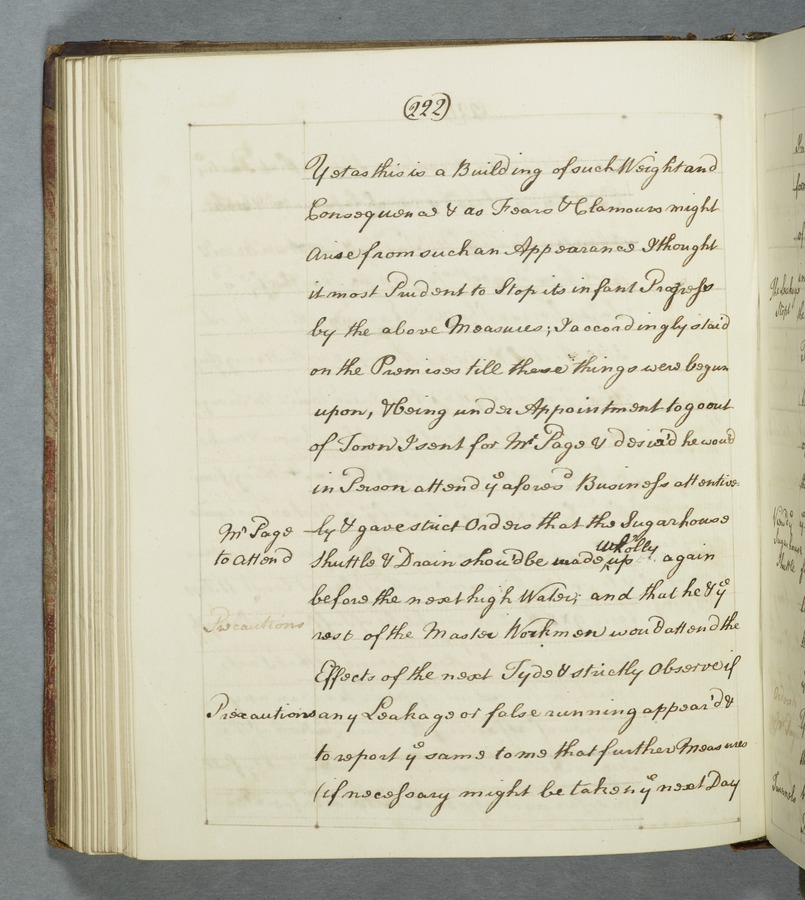 (222)
Yet as this is a Building of such Weight and
Consequence & as Fears & Clamours might
Arise from such an Appearance I thought
it most Prudent to Stop its infant Progress
by the above Measures; I accordingly staid
on the Premises till these things were begun
upon, & being under Appointment to go out
of Town I sent for Mr. Page & desir'd he wou'd
in Person attend ye afores'd Business attentive
Mr Page
to attend
-ly & gave strict Orders that the Sugarhouse
Shuttle & Drain shou'd be made wholly up again
before the next high Water; and that he & ye
Precautions
rest of the Master Workmen wou'd attend the
Effects of the next Tyde & strictly Observe if
Precautions
any Leakage or false running appear'd &
to report ye same to me that further Measures
(if necessary might be taken ye next Day
Stopt
Shuttle